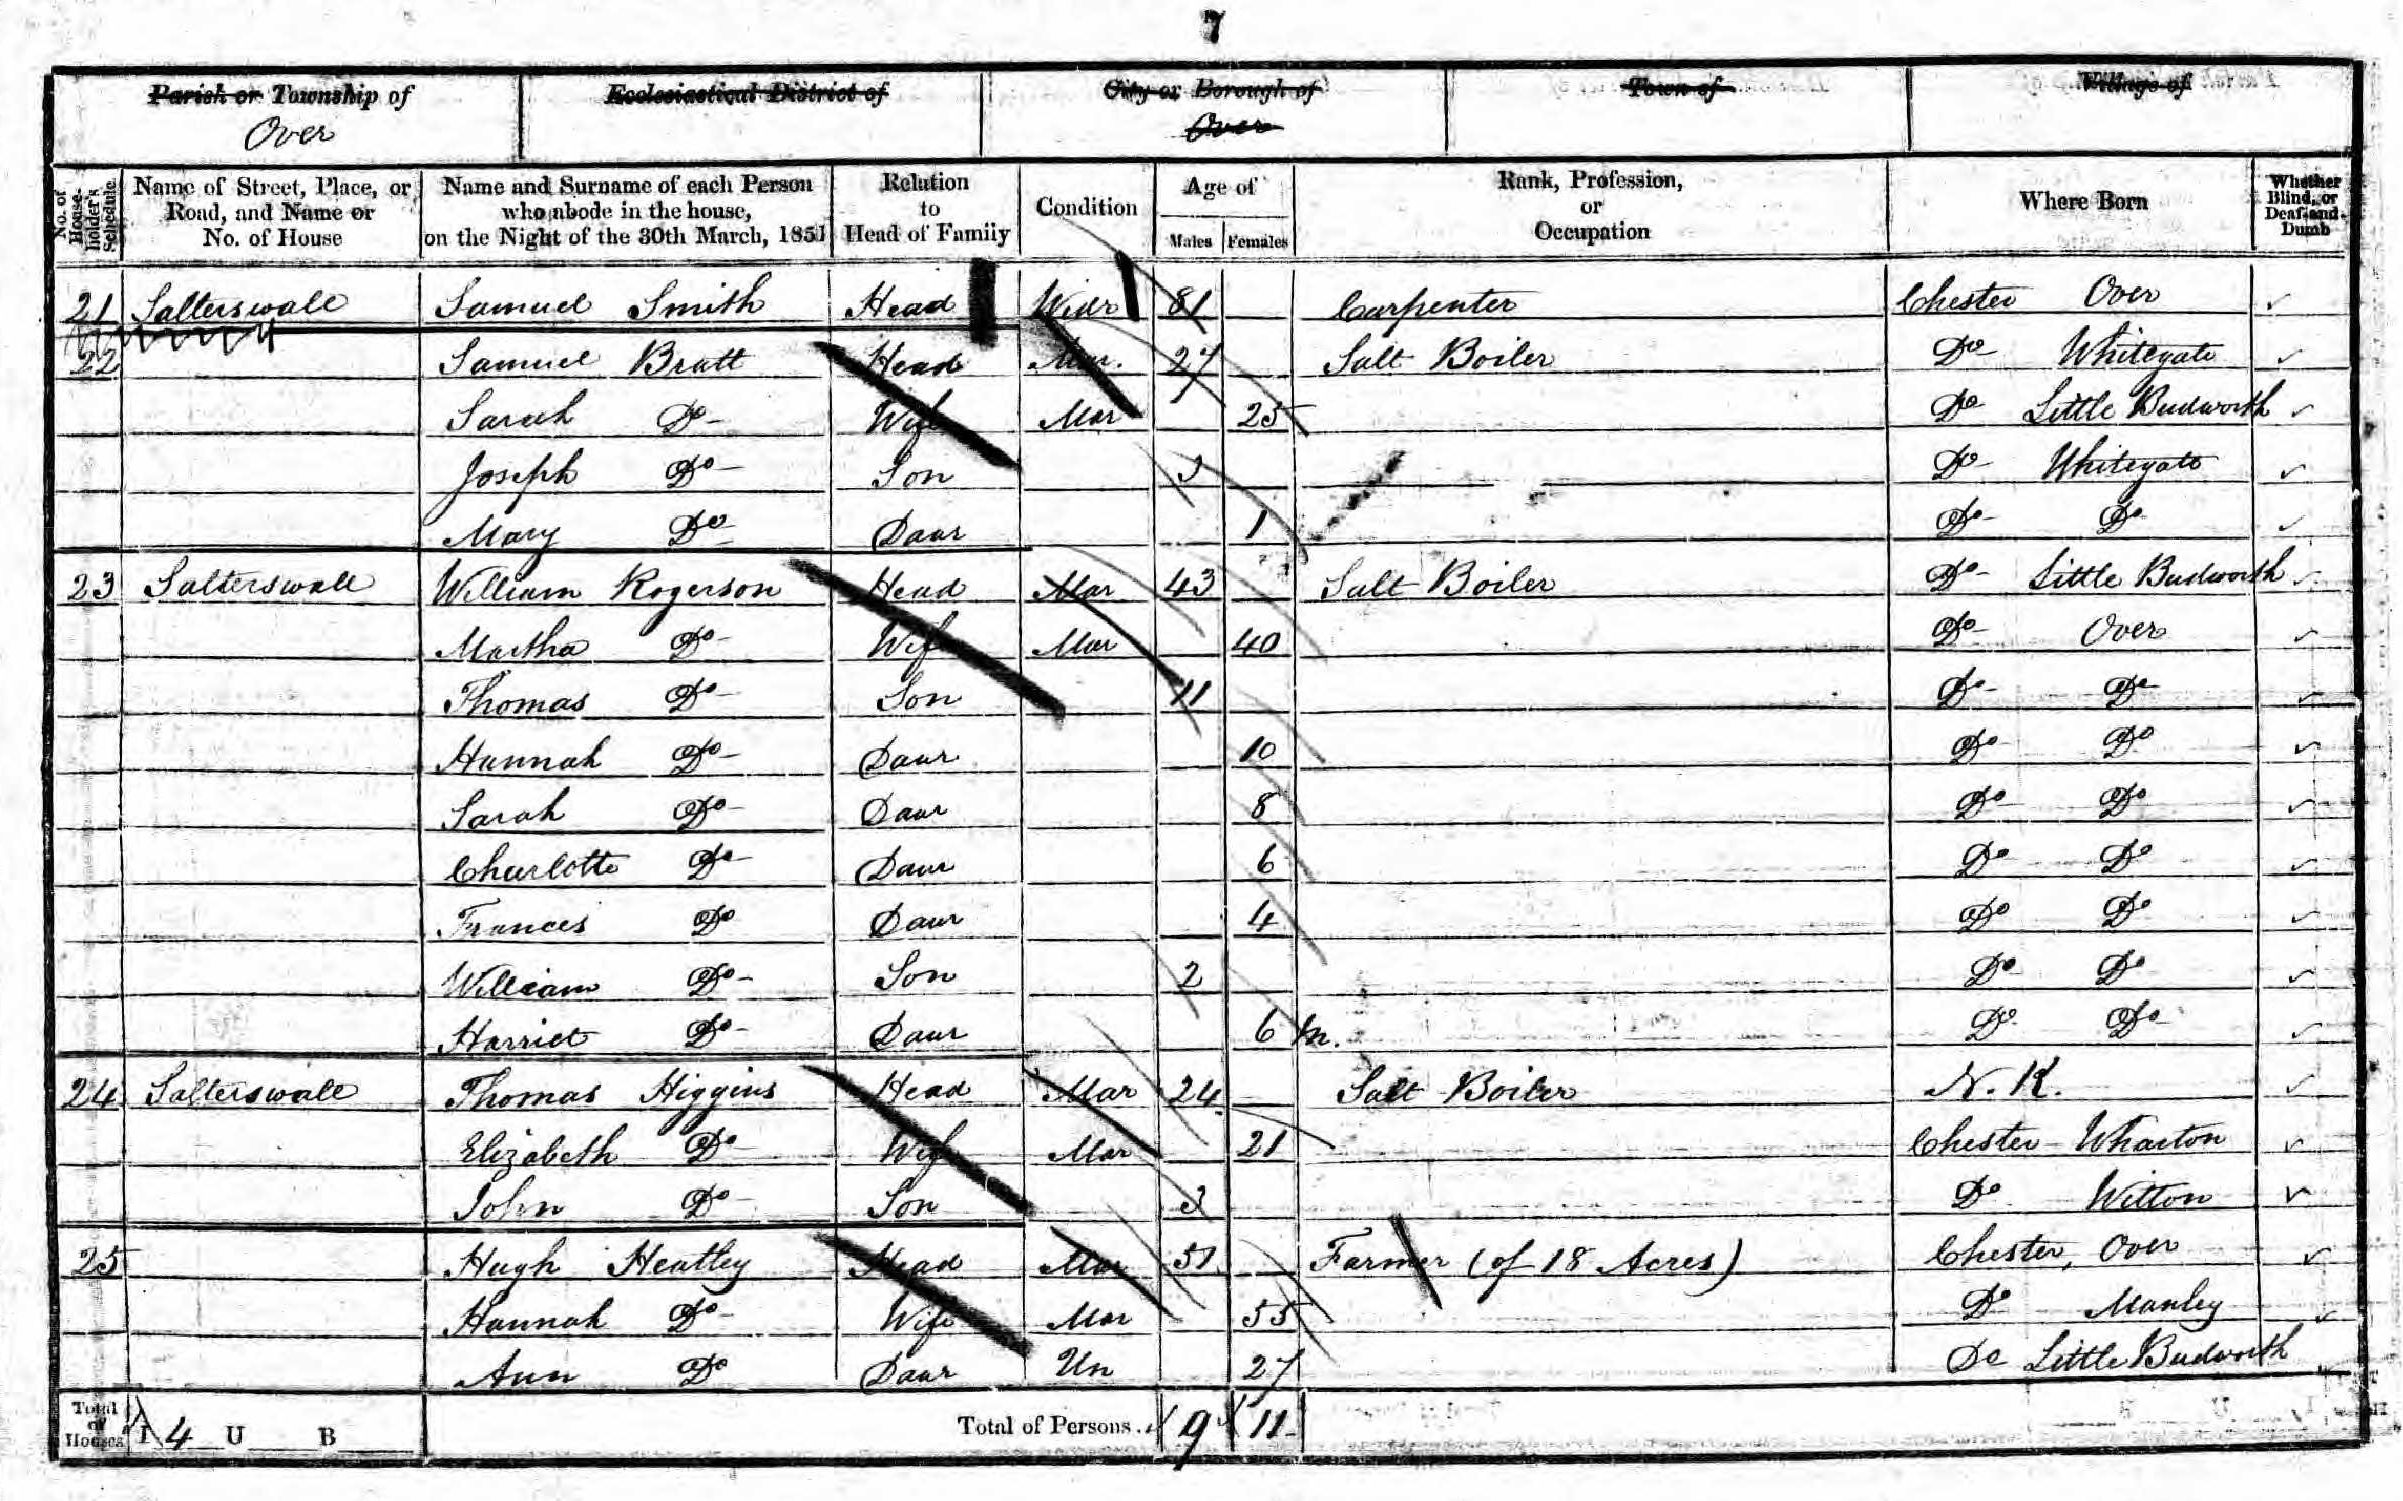 7
Parish or Township of Ecclesiastical District of City or Borough of Town of Village of
Over Over
No. of House-holder's Schedule Name of Street, Place, or Road, and Name or No. of House Name and Surname of each Person who abode in the house, on the Night of the 30th March, 1851 Relation to Head of Family Condition Age of Males Females Rank, Profession, or Occupation Where Born Whether Blind, or Deaf-and-Dumb
21 Salterswall Samuel Smith Head Widr 81 Carpenter Chester Over
22 Samuel Bratt Head Mar. 27 Salt Boiler Do Whitegate
Sarah Do Wife Mar 25 Do Little Budworth
Joseph Do Son 3 Do Whitegate
Mary Do Daur 1 Do Do
23 Salterswall William Rogerson Head Mar 43 Salt Boiler Do Little Budworth
Martha Do Wife Mar 40 Do Over
Thomas Do Son 11 Do Do
Hannah Do Daur 10 Do Do
Sarah Do Daur 8 Do Do
Charlotte Do Daur 6 Do Do
Frances Do Daur 4 Do Do
William Do Son 2 Do Do
Harriet Do Daur 6 m. Do Do
24 Salterswall Thomas Higgins Head Mar 24 Salt Boiler N. K.
Elizabeth Do Wife Mar 21 Chester Wharton
John Do Son 3 Do Witton
25 Hugh Heatley Head Mar 51 Farmer (of 18 Acres) Chester, Over
Hannah Do Wife Mar 55 Do Manley
Ann Do Daur Un 27 Do Little Budworth
Total of Houses I 4 U B Total of Persons 9 11